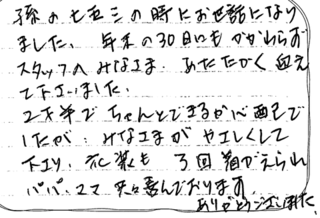 孫の七五三の時にお世話になり
ました、年末の30日にもかかわらず
スタッフのみなさま、あたたかく迎え
て下さいました。
2才半でちゃんとできるか心配で
したが、みなさまがやさしくして
下さり、衣裳も3回着がえられ
パパ、ママ 共々喜んでおります
ありがとうございました